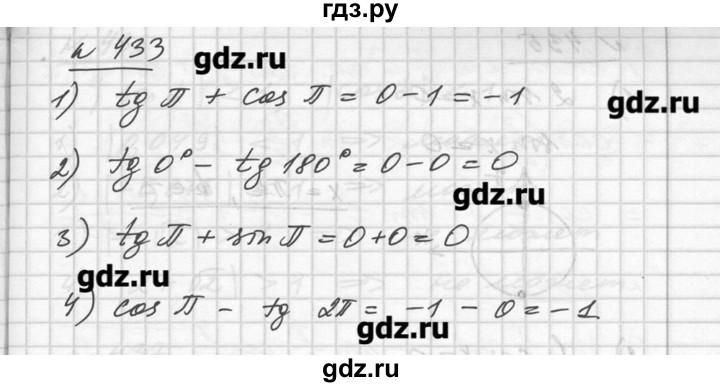 гдз.ру
№ 433
gdz.ru
1) tg π + cos π = 0 - 1 = -1
gdz.ru
2) tg 0° - tg 180° = 0 - 0 = 0
gdz.ru
3) tg π + sin π = 0 + 0 = 0
gdz.ru
4) cos π - tg 2π = -1 - 0 = -1
gdz.ru
gdz.ru